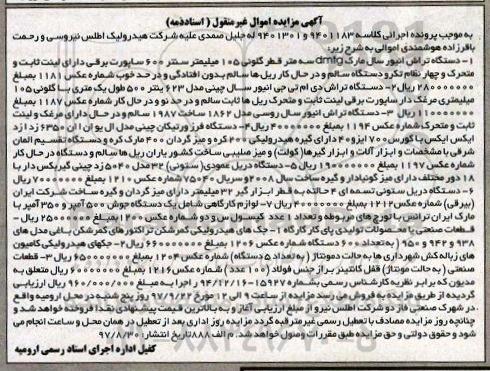 آگهی مزایده اموال غیرمنقول ( اسنادذمه)
به موجب پرونده اجرائی کلاسه ۹۴۰۱۱۸۳ و ۹۴۰۱۳۰۱ له جلیل صمدی علیه شرکت هیدرولیک اطلس نیروسی و رحمت
باقرزاده هوشمندی اموالی به شرح زیر:
۱- دستگاه تراش انیور سال مارک dmtg سه متر قطر گلوئی ۱۰۵ میلیمتر سنتر ۶۰۰ ساپورت برقی دارای لینت ثابت و
متحرک و چهار نظام تکرو دستگاه سالم و در حال کار ریل ها سالم بدون افتادگی و در حد خوب شماره عکس ۱۱۸۱ بمبلغ
۲۸۰۰۰۰۰۰۰ ریال ۲- دستگاه تراش دی ام تی جی انیور سال چینی مدل ۶۲۳ پنتر ۵۰۰ طول یک متری با گلوئی ۱۰۵
میلیمتری مرغک دار ساپورت برقی لینت ثابت و متحرک ریل ها ثابت سالم و در حد نو و در حال کار شماره عکس ۱۱۸۷ بمبلغ
۱۱۰۰۰۰۰۰۰ ریال ۳- دستگاه تراش انیور سال روسی مدل ۱۸۶۲ ساخت ۱۹۸۷ سالم و در حال دارای مرغک و لینت
ثابت و متحرک شماره عکس ۱۱۹۴ بمبلغ ۴۰۰۰۰۰۰۰۰ ریال ۴- دستگاه فرز ورتیکان چینی مدل ال یو ان ا ان ۶۳۵۰ زد ازد
ایکس ایکس با کورس ۷۰۰ ایزو ۴۰ دارای گیره هیدرولیکی ۲۰۰ کره و میز گردان ۴۰۰ مارک کره و دستگاه تقسیم المان
شرقی با مشخصات و ابزار آلات و ابزار گیرها (کولت) و میز صلیبی ساخت کشور یاران ریل ها سالم و دستگاه در حال کار
شماره عکس ۱۱۹۷ بمبلغ ۱۹۰۰۰۰۰۰۰ ریال ۵- دستگاه دریل عمودی( ستونی) ۳۲ مدل ۵۰۴ زد چینی گیربکس دار با
۱۸ دور مختلف دارای میز گونیادار و گیره ساخت سال ۲۰۰۸ سریال ۷۵۰۴۰ شماره عکس ۱۲۱۰ بمبلغ ۷۰۰۰۰۰۰۰ ریال
۶- دستگاه دریل ستونی تسمه ای ۴ حالته به قطر ابزار گیر ۳۲ میلیمتر دارای میز گردان و گیره ساخت شرکت ایران
(بیرقی) شماره عکس ۱۲۱۲ بمبلغ ۴۰۰۰۰۰۰۰ ریال ۷- لوازم کارگاهی شامل یک دستگاه جوش ۵۰۰ آمپر و ۳۵۰ آمپر با
مارک ایران ترانس با تورچ های مربوطه و تعداد ۱ عدد کپسول س و دو شماره عکس ۱۲۰۰ بمبلغ ۲۵۰۰۰۰۰۰ ریال -
قطعات صنعتی یا محصولات تولیدی پای کار کارگاه ۱- جک های هیدرولیکی کمرشکن تراکتور های کمرشکن باغی مدل های
۹۳۸ و ۹۴۲ و ۹۵۰ ( به تعداد ۶۰۰ دستگاه شماره عکس ۱۲۰۶ بمبلغ ۶۶۰۰۰۰۰۰۰ ریال ۲- جکهای هیدرولیکی کامیون
های زباله کش شهرداری ها به حالت دمونتاژ (به تعداد ۵ دستگاه) شماره عکس ۱۲۰۴ بمبلغ ۶۵۰۰۰۰۰۰ ریال ۳- قطعات
صنعتی (به حالت مونتاژ) قفل کانتینر براز جنس فولاد (۱۰۰ عدد) شماره عکس ۱۲۱۶ بمبلغ ۶۰۰۰۰۰۰۰ ریال متعلق به
مدیون که برابر نظریه کارشناس رسمی بشماره ۱۵۹۲۷-۹۴/۱۲/۱۶ ر اجرا به مبلغ ۹۶۰/۰۰۰/۰۰۰ ریال ارزیابی
گردیده از طریق مزایده به فروش می رسد مزایده از ساعت ۹ الی ۱۲ مورخ ۹۷/۹/۲۲ روز پنج شنبه در محل ارومیه واقع
در شهرک صنعتی فاز دو شرکت اطلس نیرو از مبلغ ارزیابی آغاز و به بالاترین قیمت پیشنهادی نقدا فروخته خواهد شد و
چنانچه روز مزایده مصادف با تعطیل رسمی غیرمترقبه گردد مزایده روز اداری بعد از تعطیل در همان محل و ساعت انجام می
شود و حقوق دولتی و حق مزایده طبق مقررات وصول خواهد شد. م الف ۸۸۸ تاریخ انتشار: ۹۷/۸/۳۰
کفیل اداره اجرای اسناد رسمی ارومیه